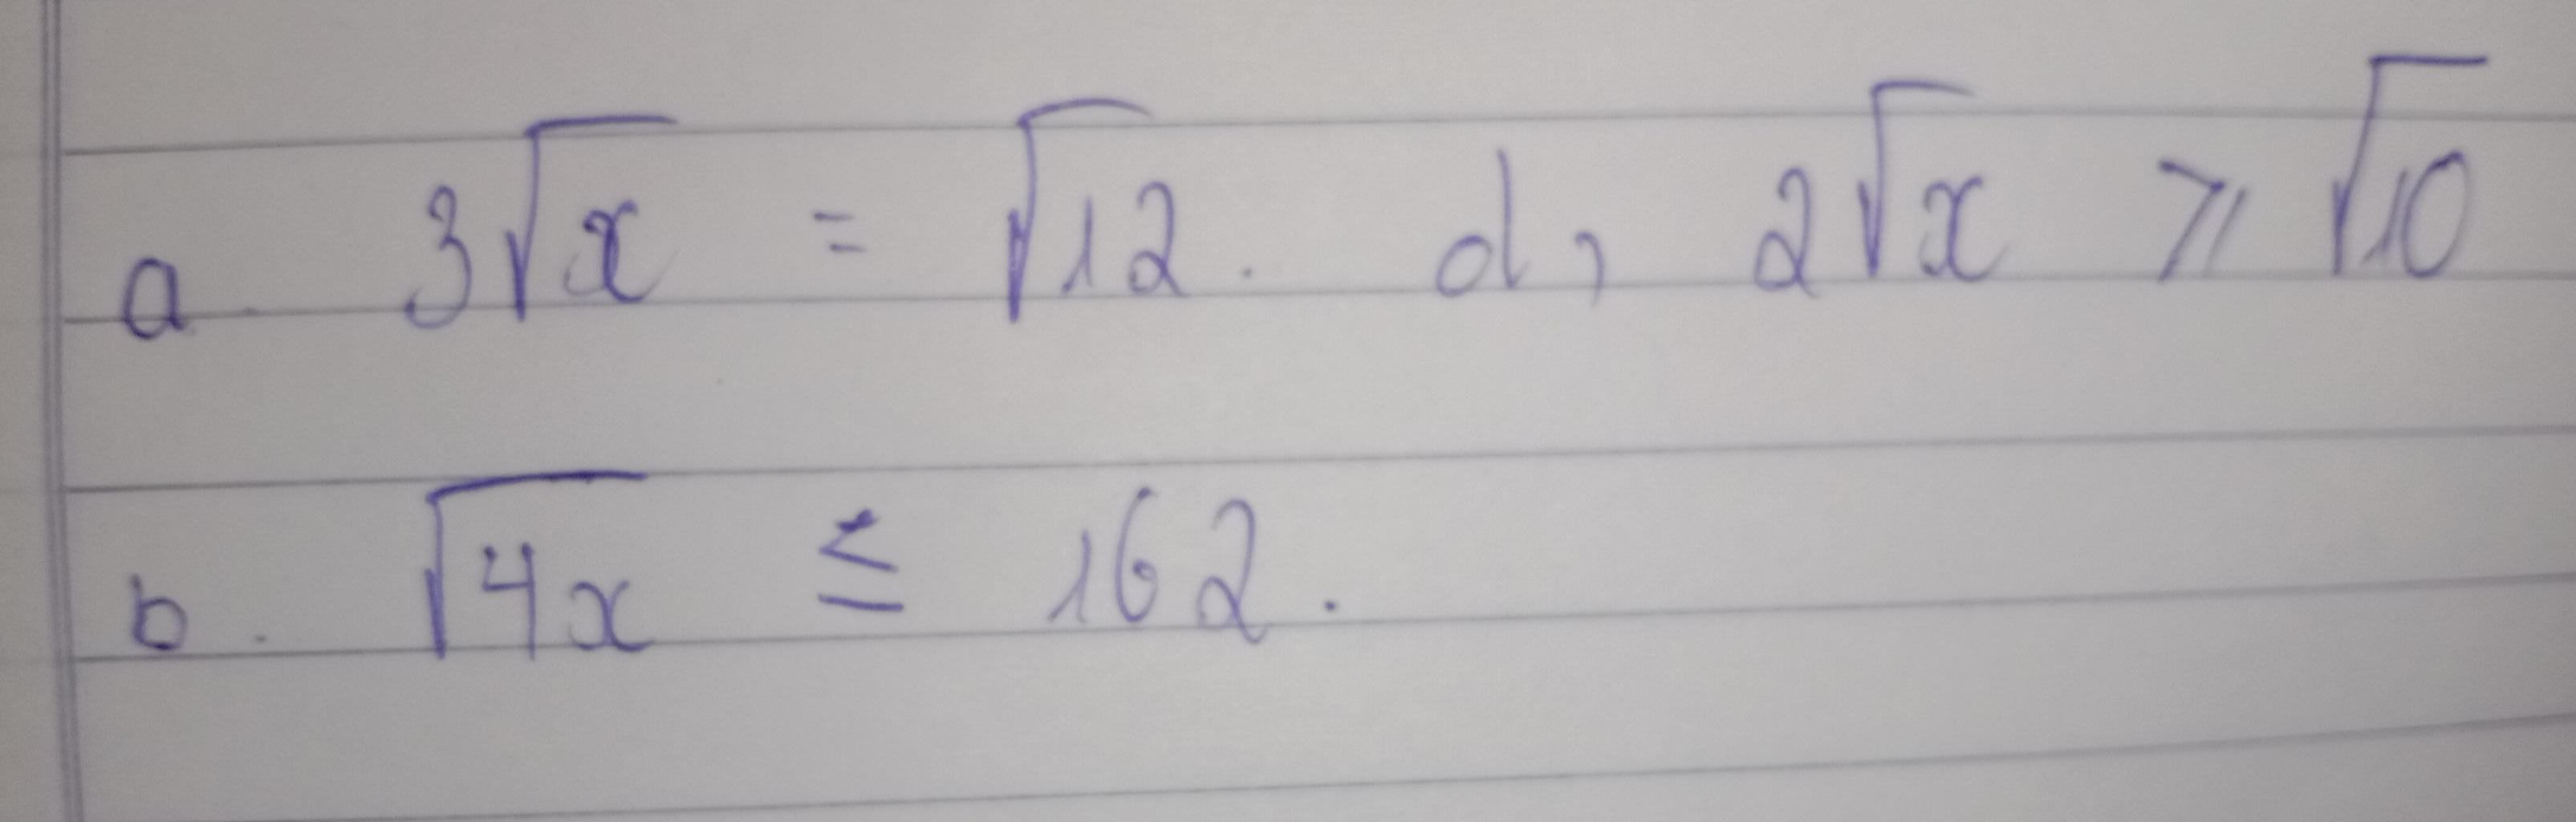 a. 3√x = √12. d, 2√x ⩾ √10
b. √4x ≤ 162.